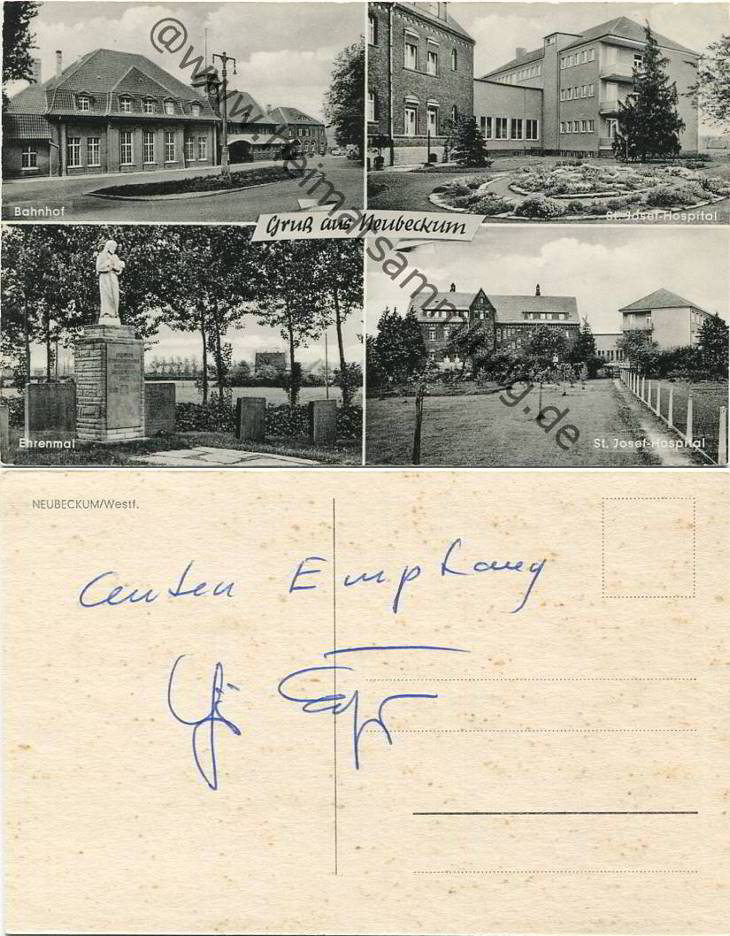 Bahnhof
St. Josef-Hospital
Gruß aus Neubeckum
Ehrenmal
St. Josef-Hospital
@www.heimatsammlung.de
NEUBECKUM/Westf.
Guten Empfang